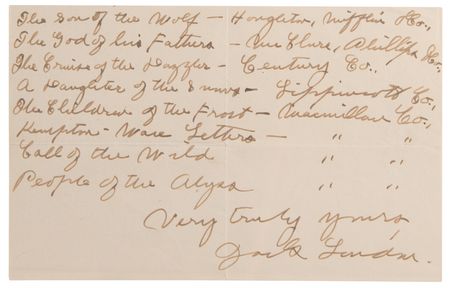 The Son of the Wolf – Houghton, Mifflin & Co.,
The God of his Fathers – McClure, Phillips & Co.,
The Cruise of the Dazzler – Century Co.,
A Daughter of the Snows – Lippincott Co.,
The Children of the Frost – Macmillan Co.,
Kempton-Wace Letters – " "
Call of the Wild " "
People of the Abyss " "
Very truly yours,
Jack London.